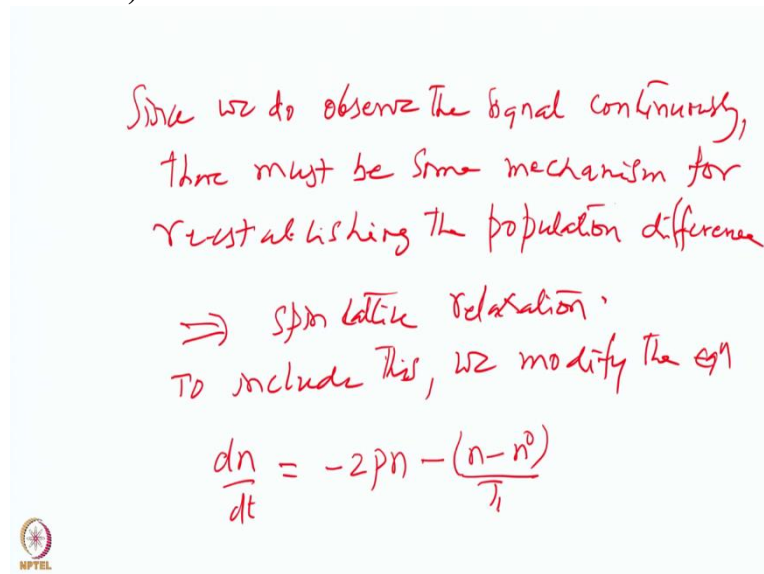 Since we do observe the signal continuously,
there must be some mechanism for
reestablishing the population difference
⇒ spin lattice relaxation.
To include this, we modify the eqn
dn/dt = -2pn - (n-n⁰)/T₁
NPTEL